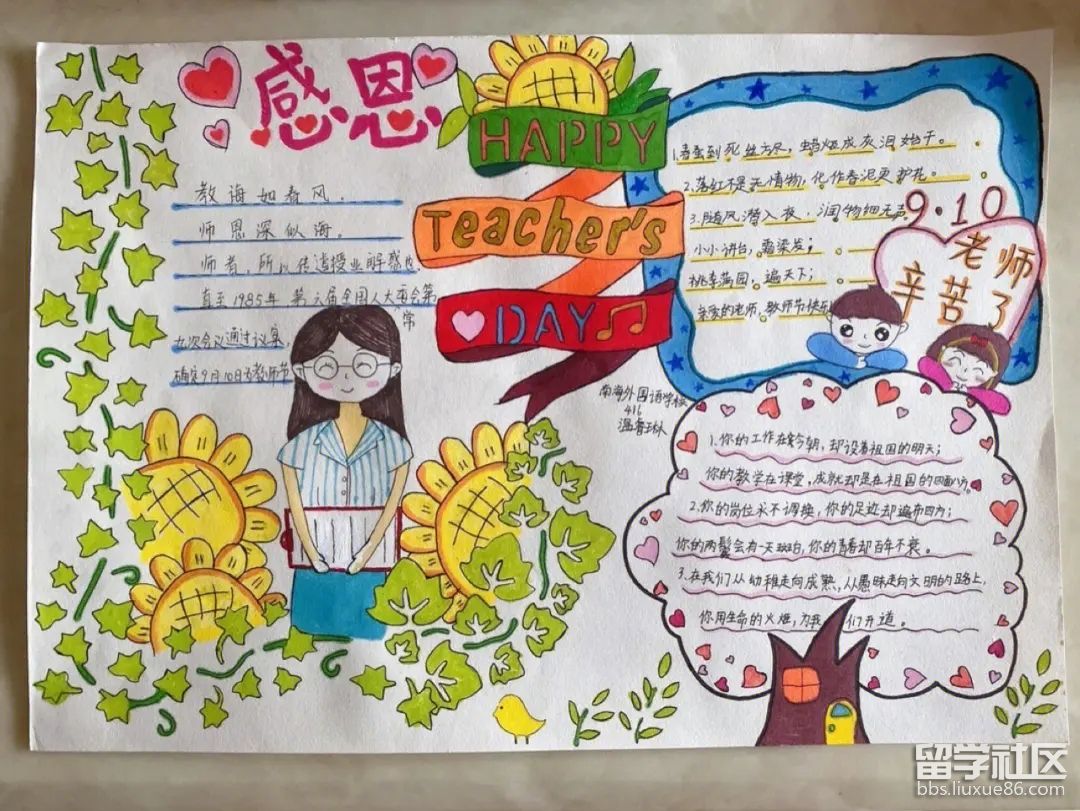 感恩
HAPPY
Teacher's
DAY
教诲如春风，
师恩深似海。
师者，所以传道授业解惑也，
直至1985年 第六届全国人大常会第
常
九次会议通过议案，
确定9月10日为教师节
1.春蚕到死丝方尽，蜡炬成灰泪始干。
2.落红不是无情物，化作春泥更护花。
3.随风潜入夜，润物细无声。
小小讲台，霜染发；
桃李满园，遍天下；
亲爱的老师，教师节快乐
9·10
老师
辛苦了
南海外国语学校
416
温睿琳
1.你的工作在今朝，却设着祖国的明天；
你的教学在课堂，成就却是在祖国的四面八方。
2.你的岗位永不调换，你的足迹却遍布四方；
你的两鬓会有一天斑白，你的青春却百年不衰。
3.在我们从幼稚走向成熟，从愚昧走向文明的路上，
你用生命的火炬，为我们开道。
留学社区
bbs.liuxue86.com